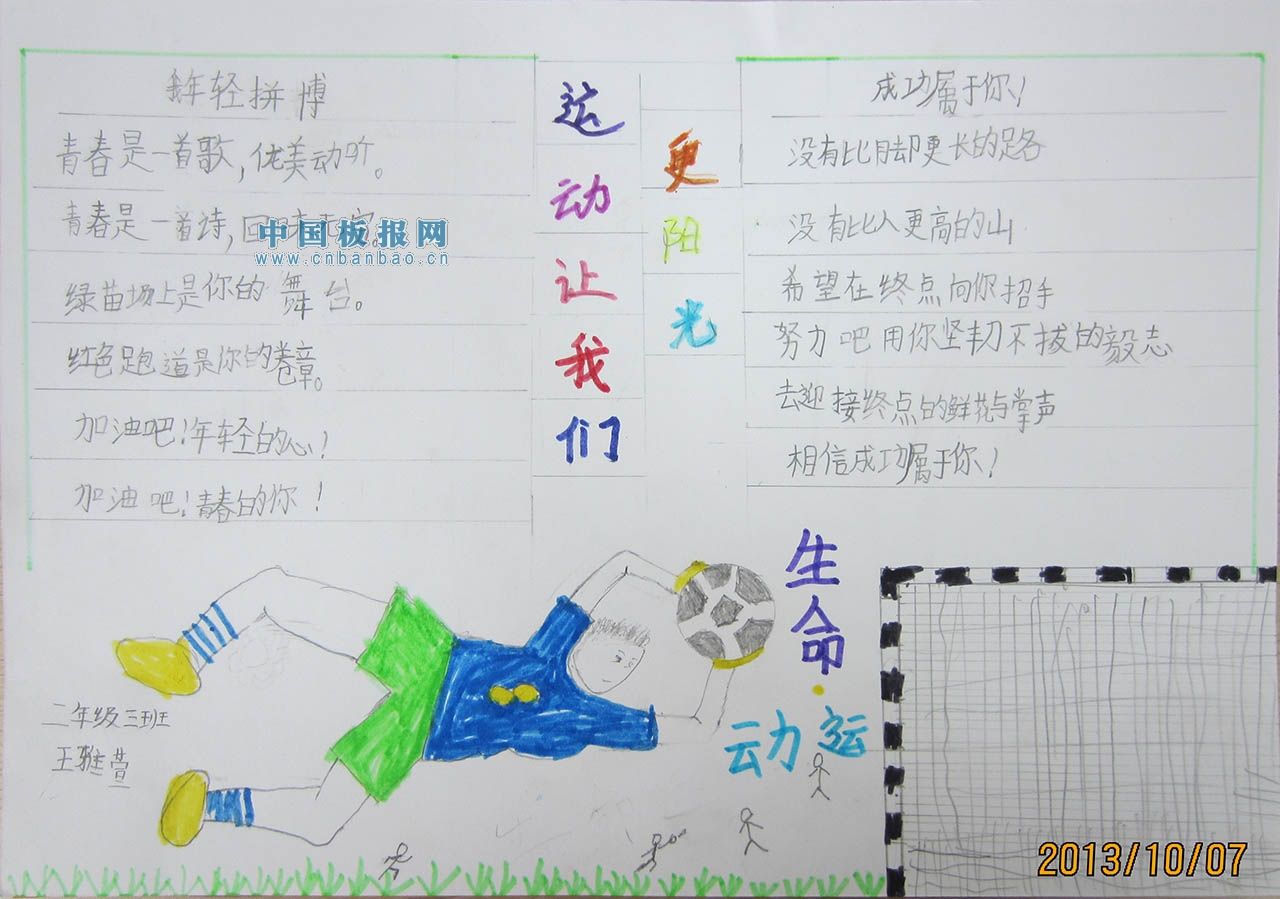 年轻拼博
青春是一首歌,优美动听。
青春是一首诗,回
中国板报网
www.cnbanbao.cn
绿苗场上是你的舞台。
红色跑道是你的卷章。
加油吧!年轻的心!
加油吧!青春的你!
运动让我们
更阳光
成功属于你!
没有比脚更长的路
没有比人更高的山
希望在终点向你招手
努力吧用你坚韧不拔的毅志
去迎接终点的鲜花与掌声
相信成功属于你!
生命·
动运
二年级三班
王雅萱
2013/10/07